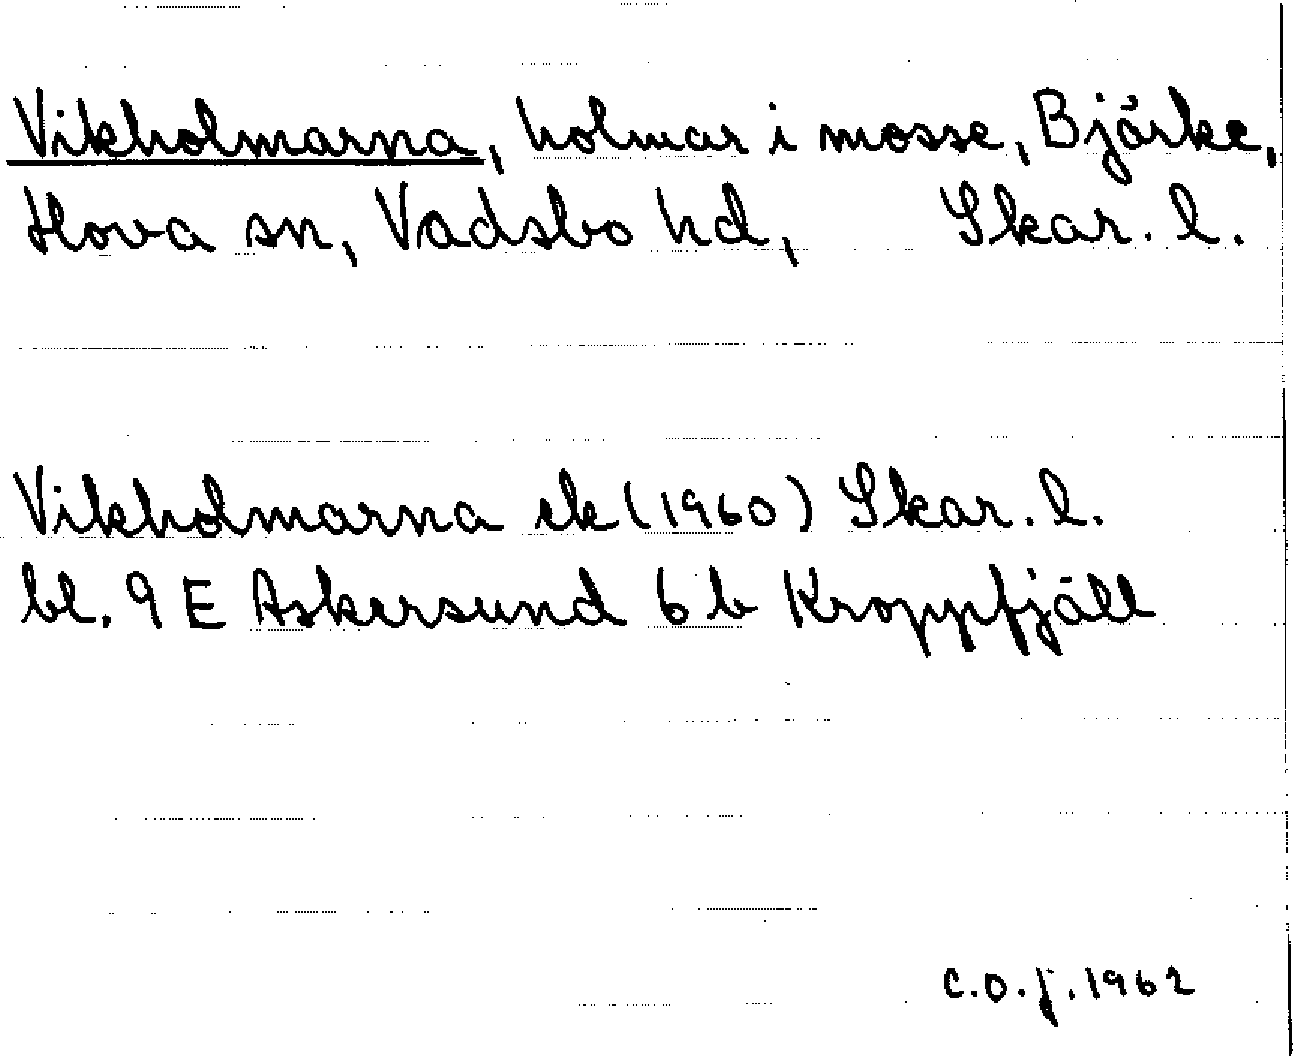 Vikholmarna, holmar i mosse, Bjärke,
Hova sn, Vadsbo hd, Skar. l.
Vikholmarna ek (1960) Skar. l.
bl. 9 E Askersund 6 b Kroppfjäll
C.O.J. 1962